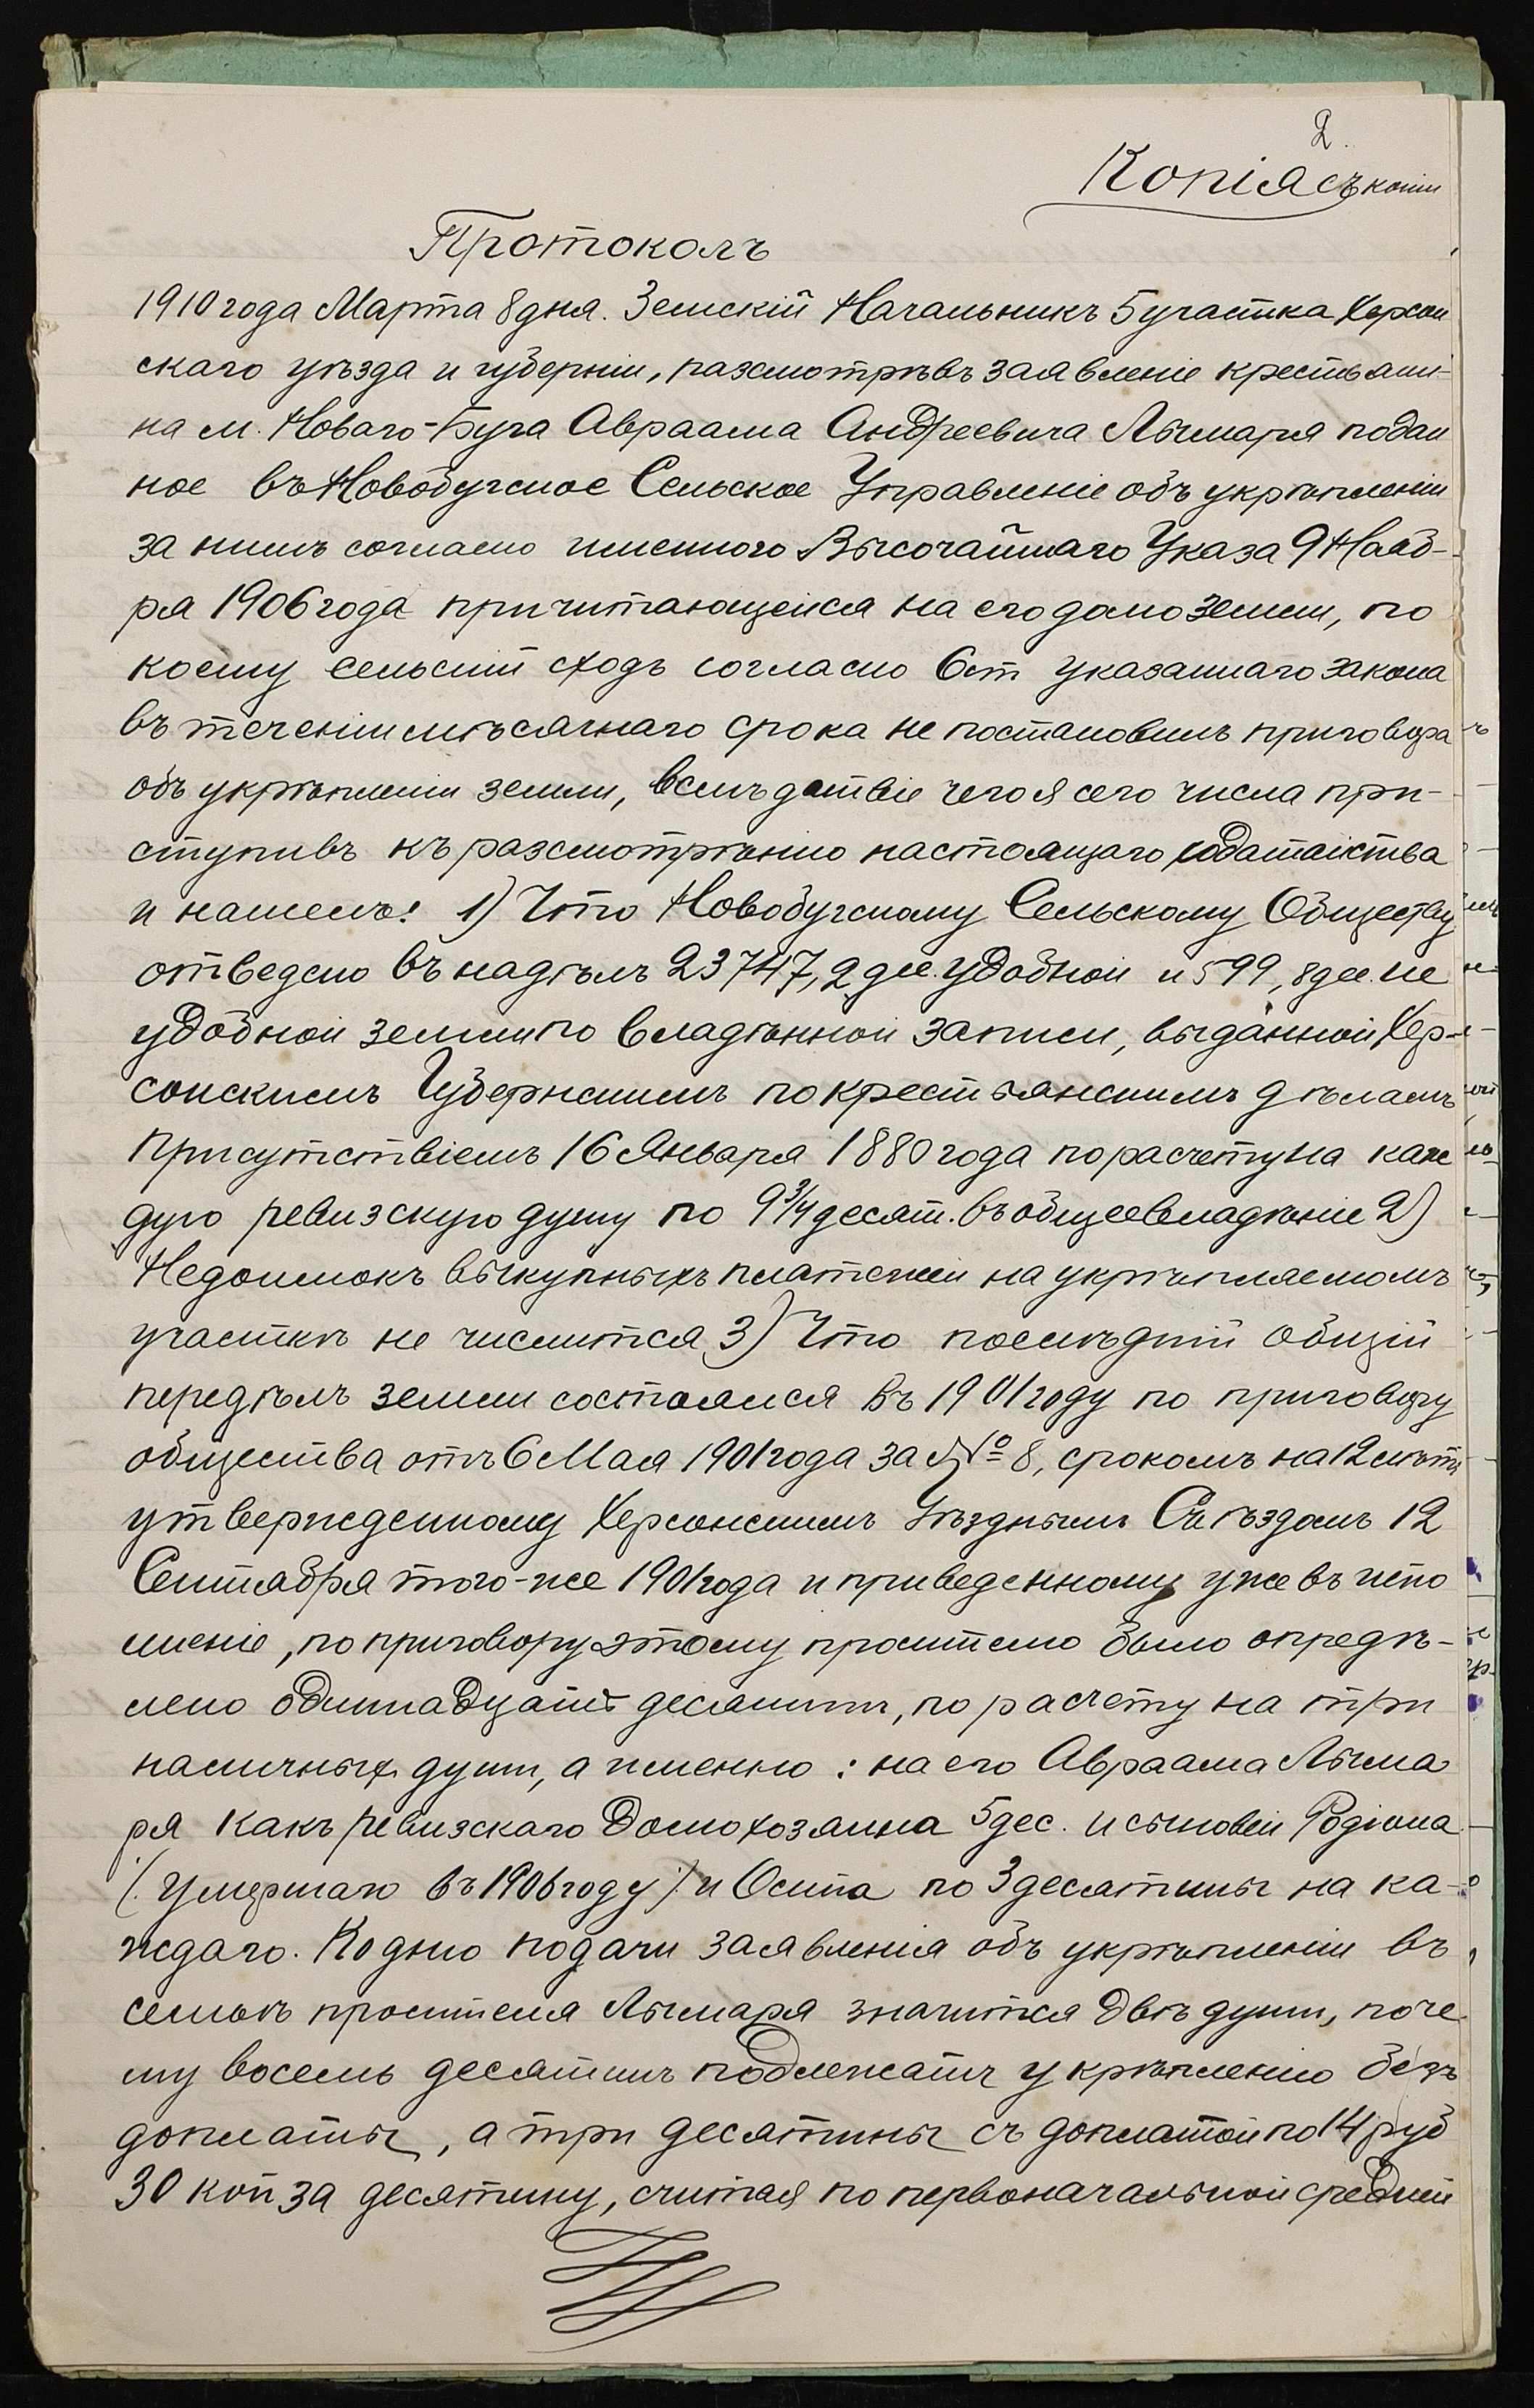 2.
Копія съ копіи
Протоколъ
1910 года Марта 8 дня. Земскій Начальникъ 5 участка Херсон
скаго уѣзда и губерніи, разсмотрѣвъ заявленіе крестьяни-
на м. Новаго-Буга Авраама Андреевича Лымаря подан
ное въ Новобугское Сельское Управленіе объ укрѣпленіи
за нимъ согласно именного Высочайшаго Указа 9 Нояб-
ря 1906 года причитающейся на его долю земли, по
коему сельскій сходъ согласно 6 ст указаннаго закона
въ теченіи мѣсячнаго срока не постановилъ приговора
объ укрѣпленіи земли, вслѣдствіе чего я сего числа при-
ступивъ къ разсмотрѣнію настоящаго ходатайства
и нашелъ: 1) Что Новобугскому Сельскому Обществу
отведено въ надѣлъ 23747,2 дес. удобной и 599,8 дес. не
удобной земли по владѣнной записи, выданной Хер-
сонскимъ Губернскимъ по крестьянскимъ дѣламъ
Присутствіемъ 16 Января 1880 года по расчету на каж
дую ревизскую душу по 9 3/4 десят. въ общее владѣніе 2)
Недоимокъ выкупныхъ платежей на укрѣпляемомъ
участкѣ не числится, 3) Что послѣдній общій
передѣлъ земли состоялся въ 1901 году по приговору
общества отъ 6 Мая 1901 года за № 8, срокомъ на 12 лѣтъ
утвержденному Херсонскимъ Уѣзднымъ Съѣздомъ 12
Сентября того-же 1901 года и приведенному уже въ испо
лненіе, по приговору этому просителю было опредѣ-
лено одиннадцать десятинъ, по расчету на три
наличныхъ души, а именно: на его Авраама Лыма
ря какъ ревизскаго домохозяина 5 дес. и сыновей Родіона
/умершаго въ 1906 году/ и Осипа по 3 десятины на ка-
ждаго. Ко дню подачи заявленія объ укрѣпленіи въ
семьѣ просителя Лымаря значится двѣ души, поче
му восемь десятинъ подлежатъ укрѣпленію безъ
доплаты, а три десятины съ доплатой по 14 руб
30 коп за десятину, считая по первоначальной средней